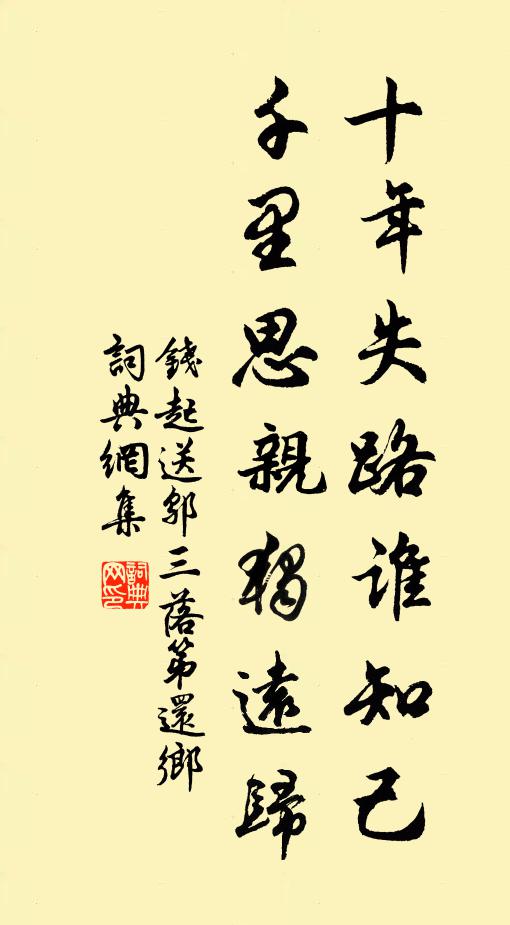 十年失路誰知己
千里思親獨遠歸
錢起送鄔三落第還鄉
詞典網集
詞典网印